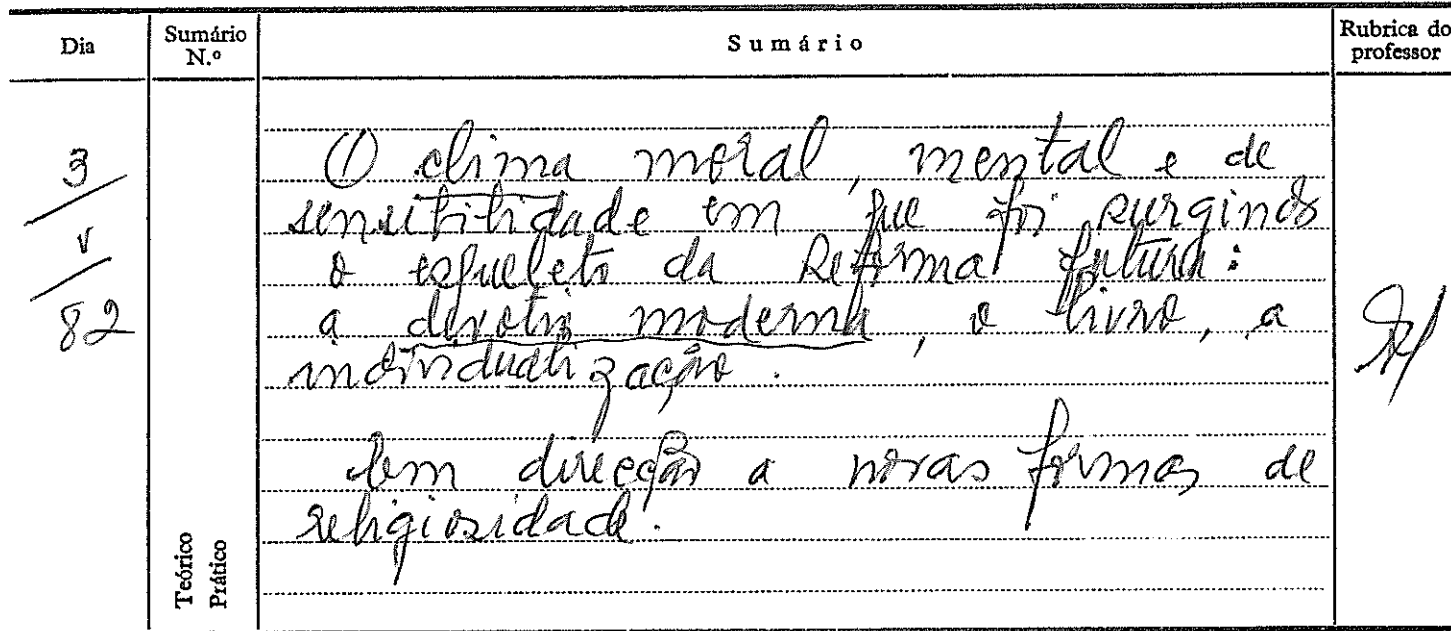 Dia
Sumário N.º
Sumário
Rubrica do professor
3
V
82
O clima moral, mental e de
sensibilidade em que foi surgindo
o esqueleto da Reforma futura:
a devotio moderna, o livro, a
individualização.
Em direcção a novas formas de
religiosidade.
Teórico
Prático